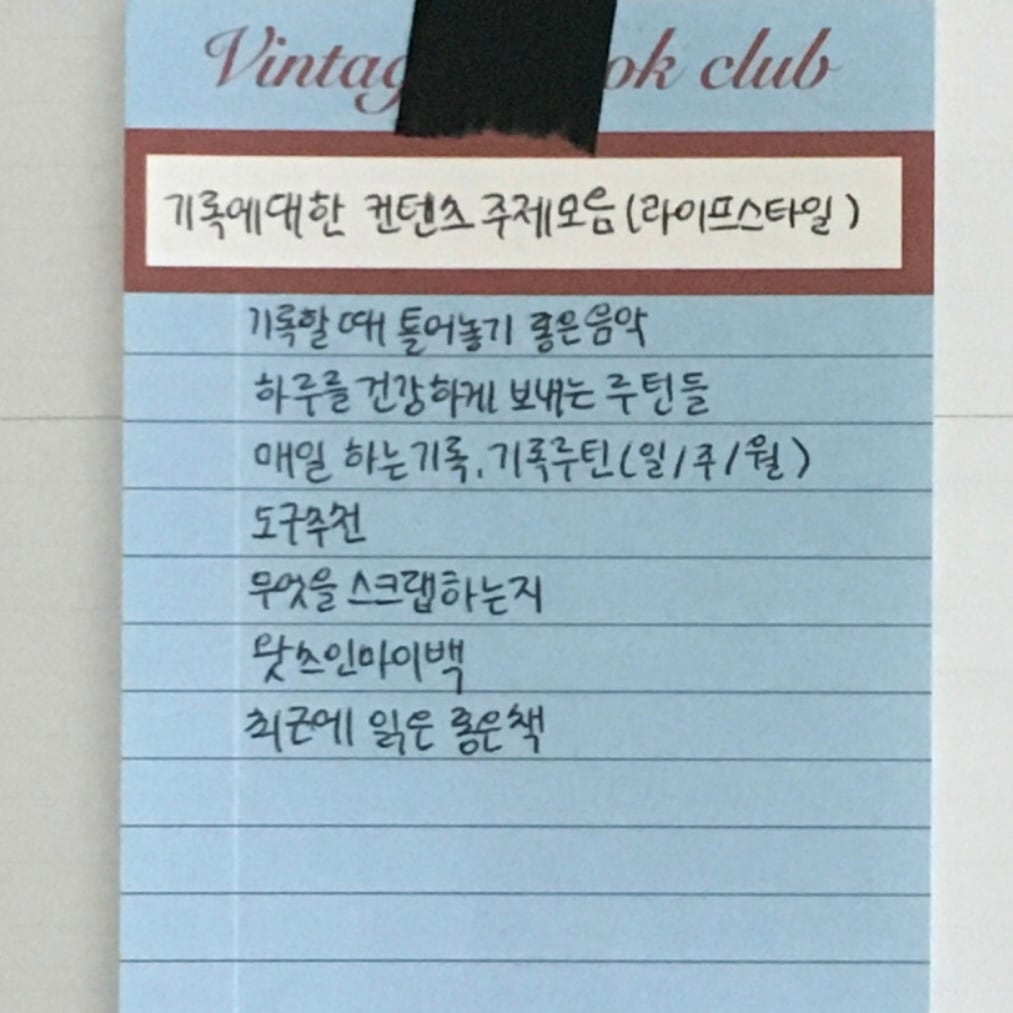 Vintag ok club
기록에대한 컨텐츠 주제모음(라이프스타일)
기록할 때 틀어놓기 좋은음악
하루를 건강하게 보내는 루틴들
매일 하는기록, 기록루틴(일/주/월)
도구추천
무엇을 스크랩하는지
왓츠인마이백
최근에 읽은 좋은책